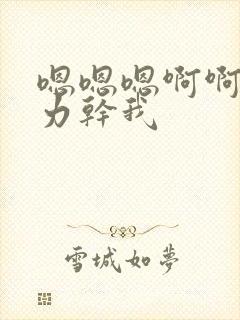 嗯嗯嗯啊啊
力幹我
雪城如夢